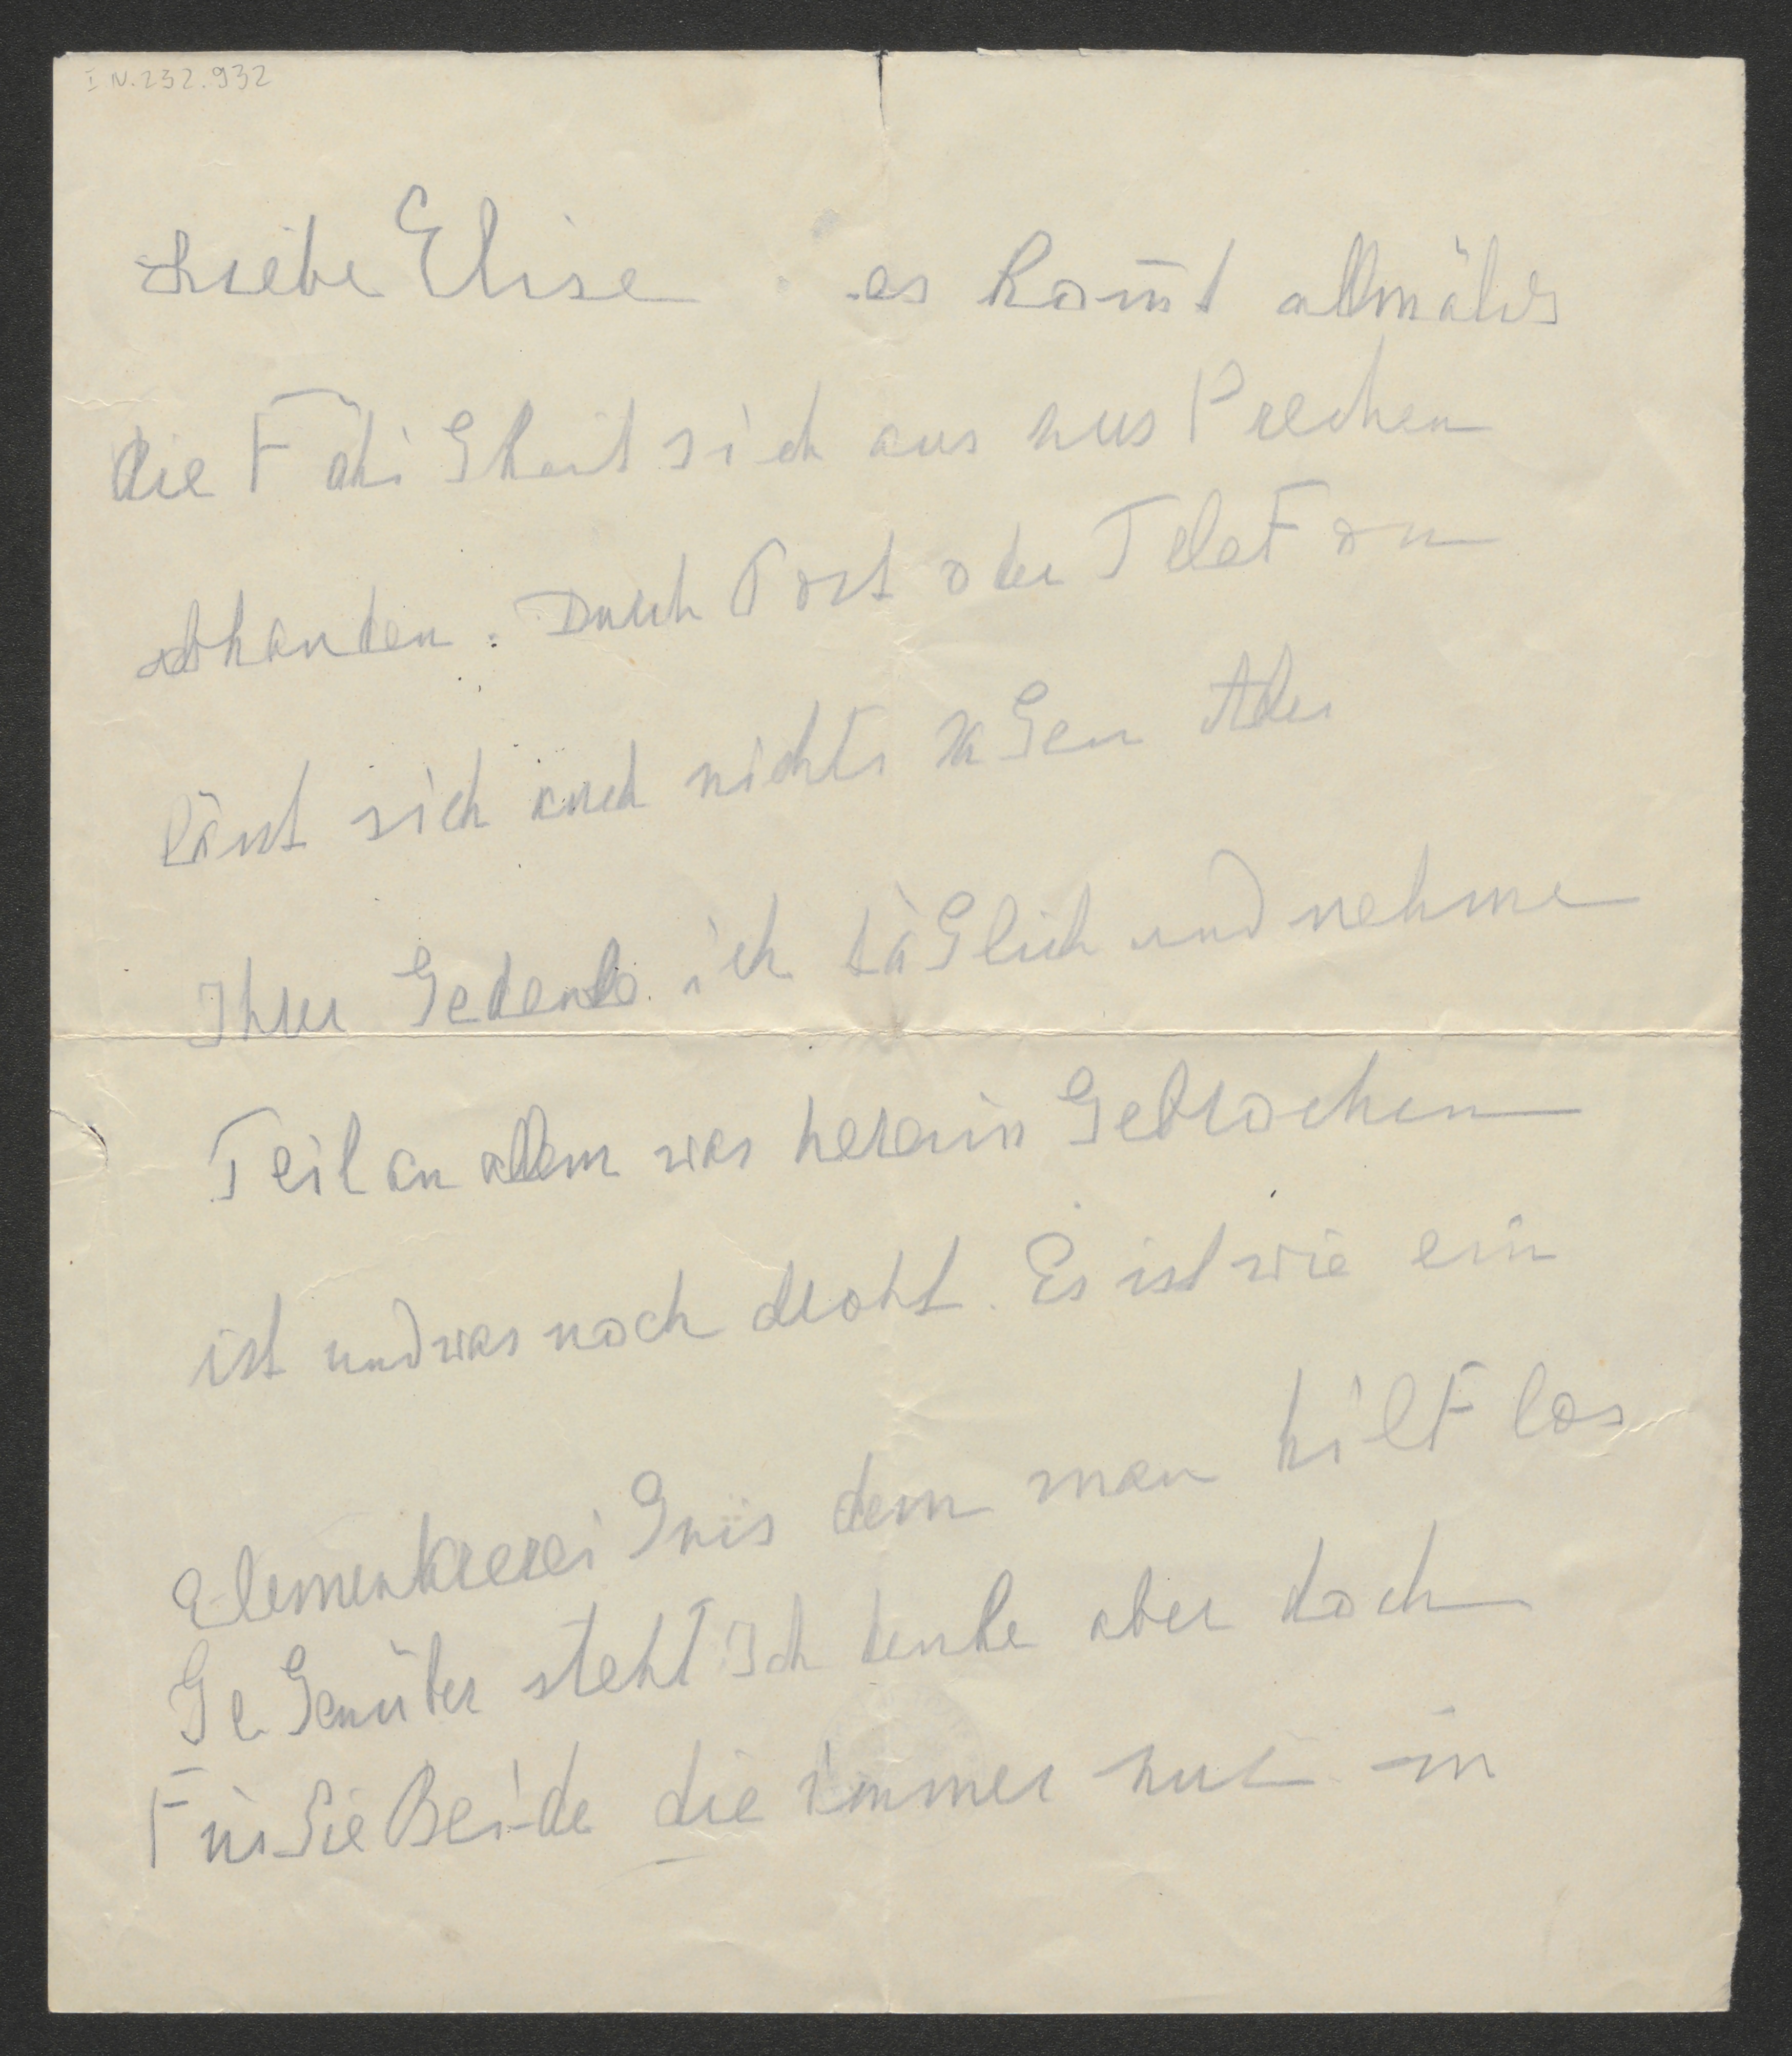 I N. 232.932
Liebe Elise es kom̄t allmälich
die Fähigkeit sich aus zus Prechen
abhanden. Durch Post oder TeleFon
lässt sich auch nichts saGen Aber
Ihrer Gedenke ich täGlich und nehme
Teil an allem was herein Gebrochen
ist und was noch droht. Es ist wie ein
ElementarereiGnis dem man hilFlos
GeGenüber steht Ich denke aber doch
Für Sie Beide die immer nur in